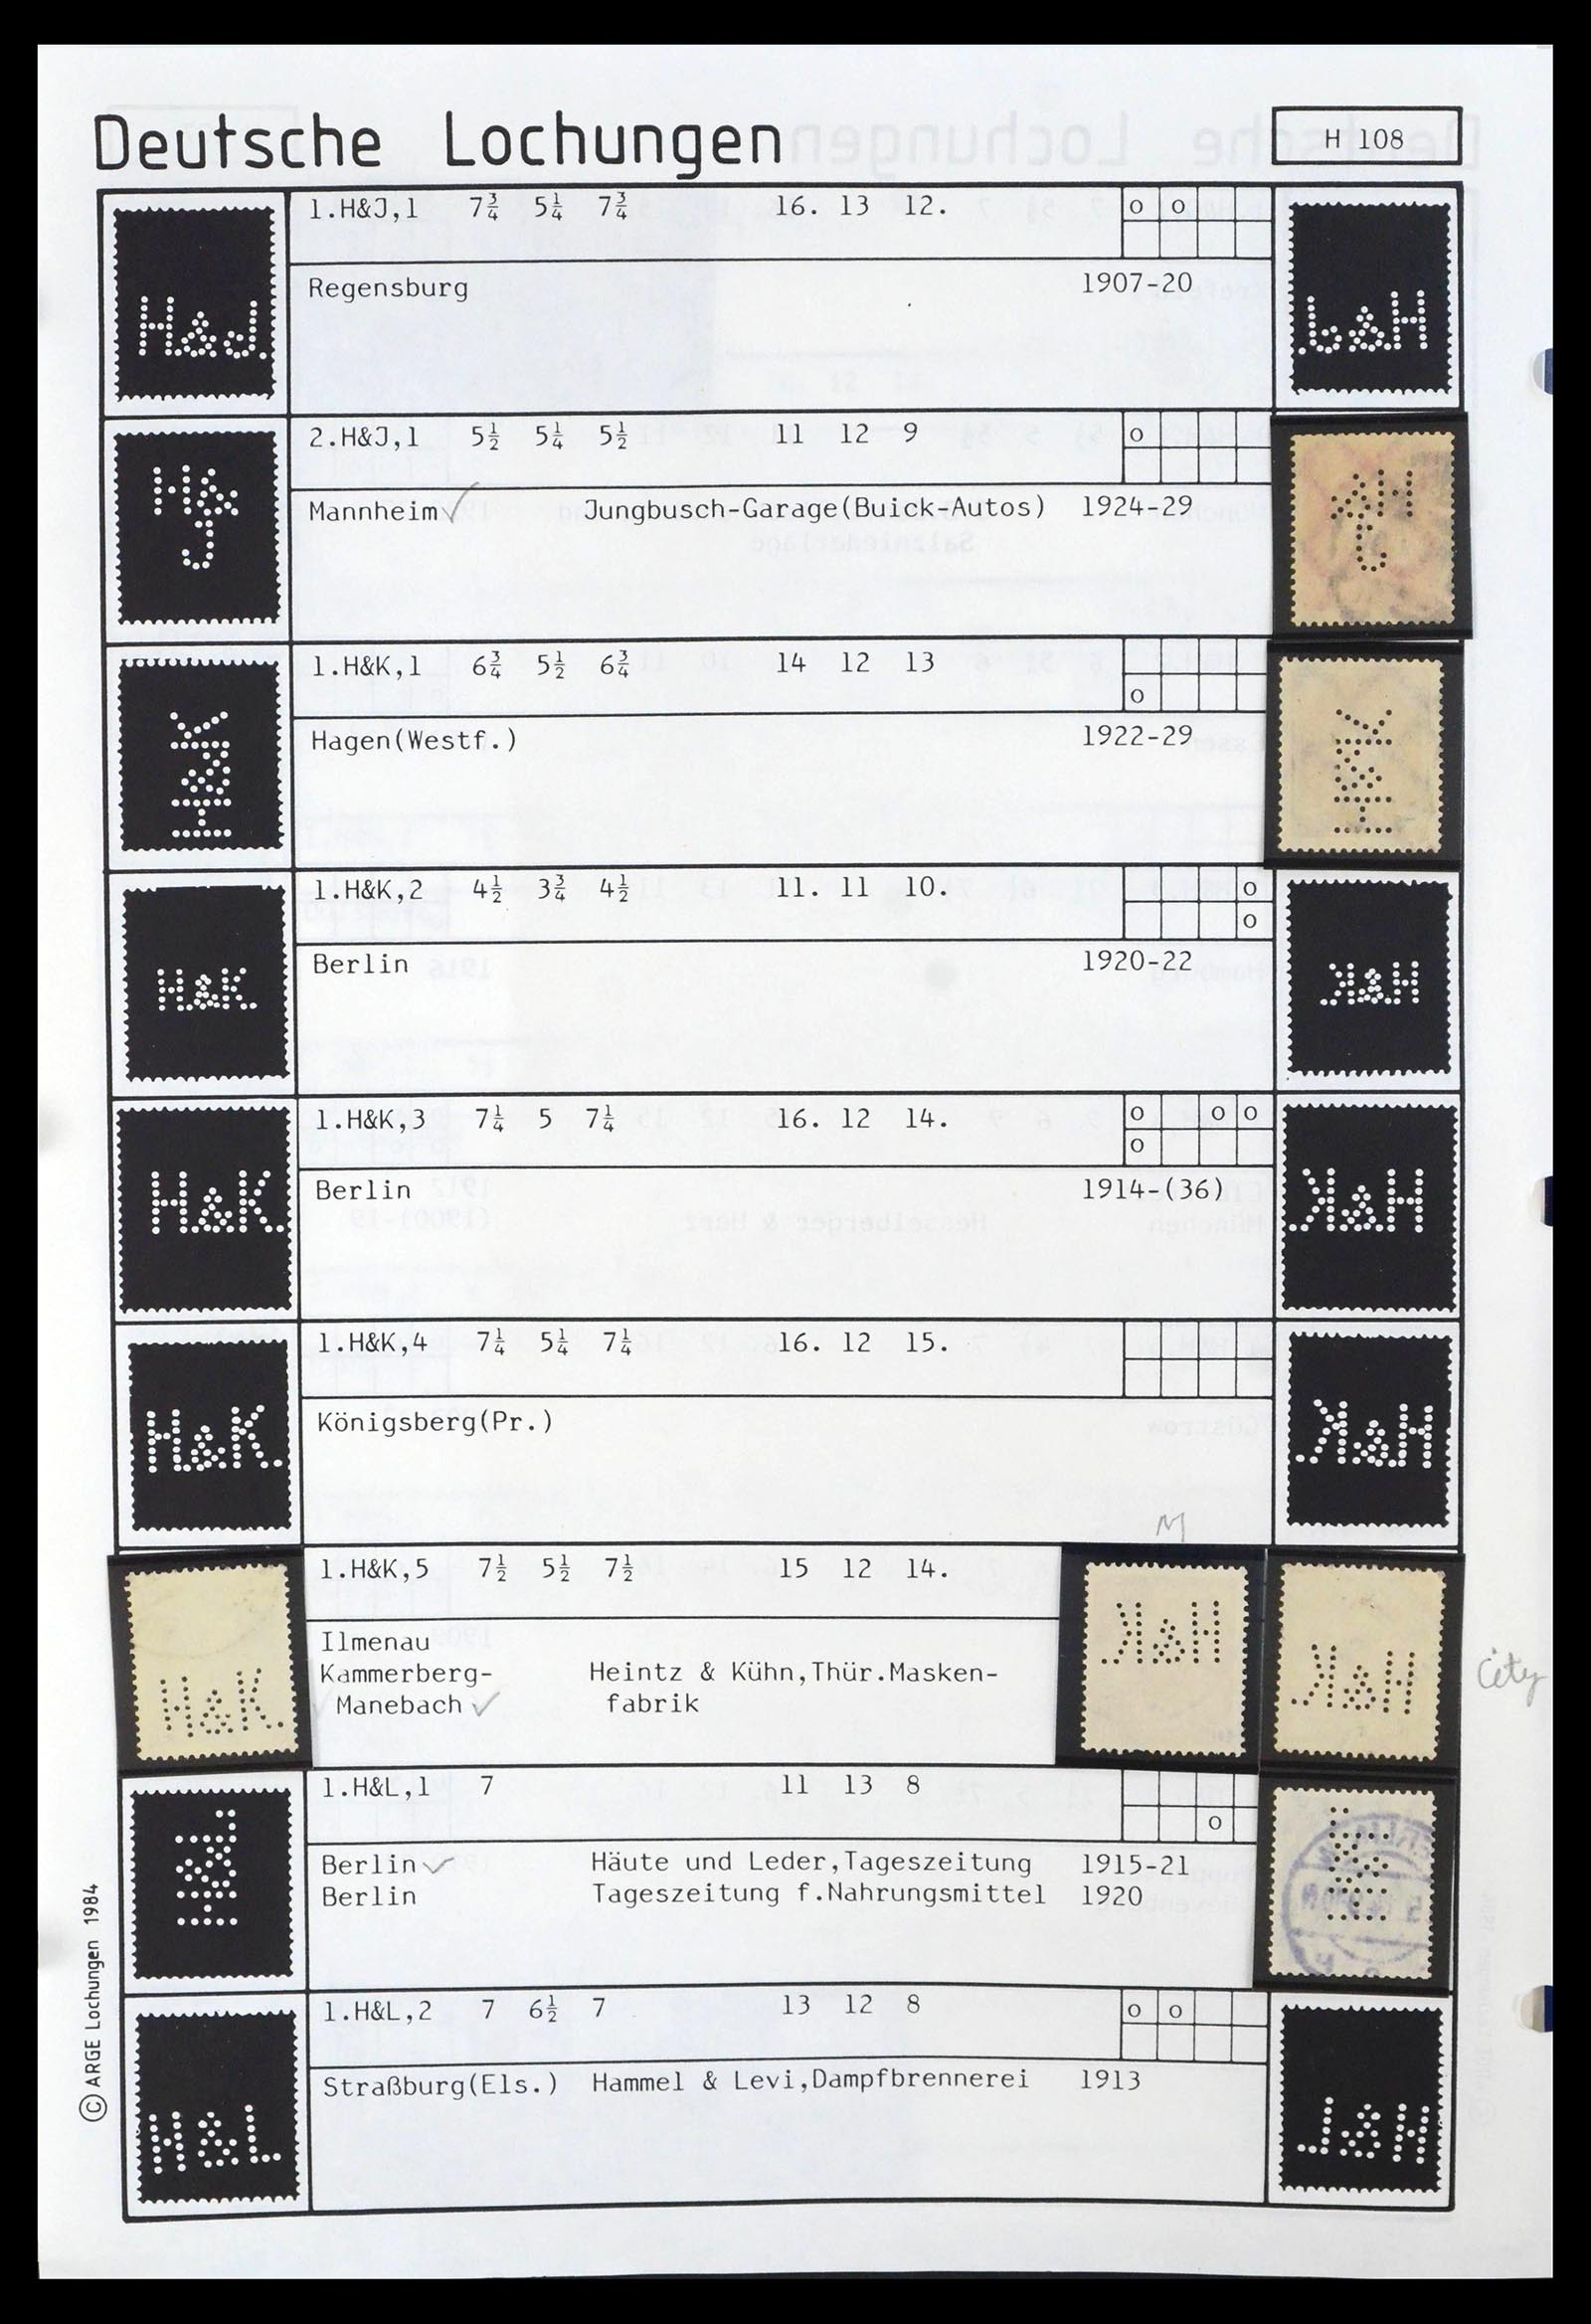 Deutsche Lochungen
H 108
H&J.
1.H&J,1 7¾ 5¼ 7¾ 16. 13 12. o o
Regensburg 1907-20
H&
J
2.H&J,1 5½ 5¼ 5½ 11 12 9 o
Mannheim Jungbusch-Garage(Buick-Autos) 1924-29
H&K
1.H&K,1 6¾ 5½ 6¾ 14 12 13
o
Hagen(Westf.) 1922-29
H&K.
1.H&K,2 4½ 3¾ 4½ 11. 11 10. o
o
Berlin 1920-22
H&K.
1.H&K,3 7¼ 5 7¼ 16. 12 14. o o o
o
Berlin 1914-(36)
H&K.
1.H&K,4 7¼ 5¼ 7¼ 16. 12 15.
Königsberg(Pr.)
M
H&K.
1.H&K,5 7½ 5½ 7½ 15 12 14.
Ilmenau
Kammerberg-
Manebach ✓
Heintz & Kühn,Thür.Masken-
fabrik
City
H&L
1.H&L,1 7 11 13 8
o
Berlin ✓ Häute und Leder,Tageszeitung 1915-21
Berlin Tageszeitung f.Nahrungsmittel 1920
H&L
1.H&L,2 7 6½ 7 13 12 8 o o
Straßburg(Els.) Hammel & Levi,Dampfbrennerei 1913
© ARGE Lochungen 1984